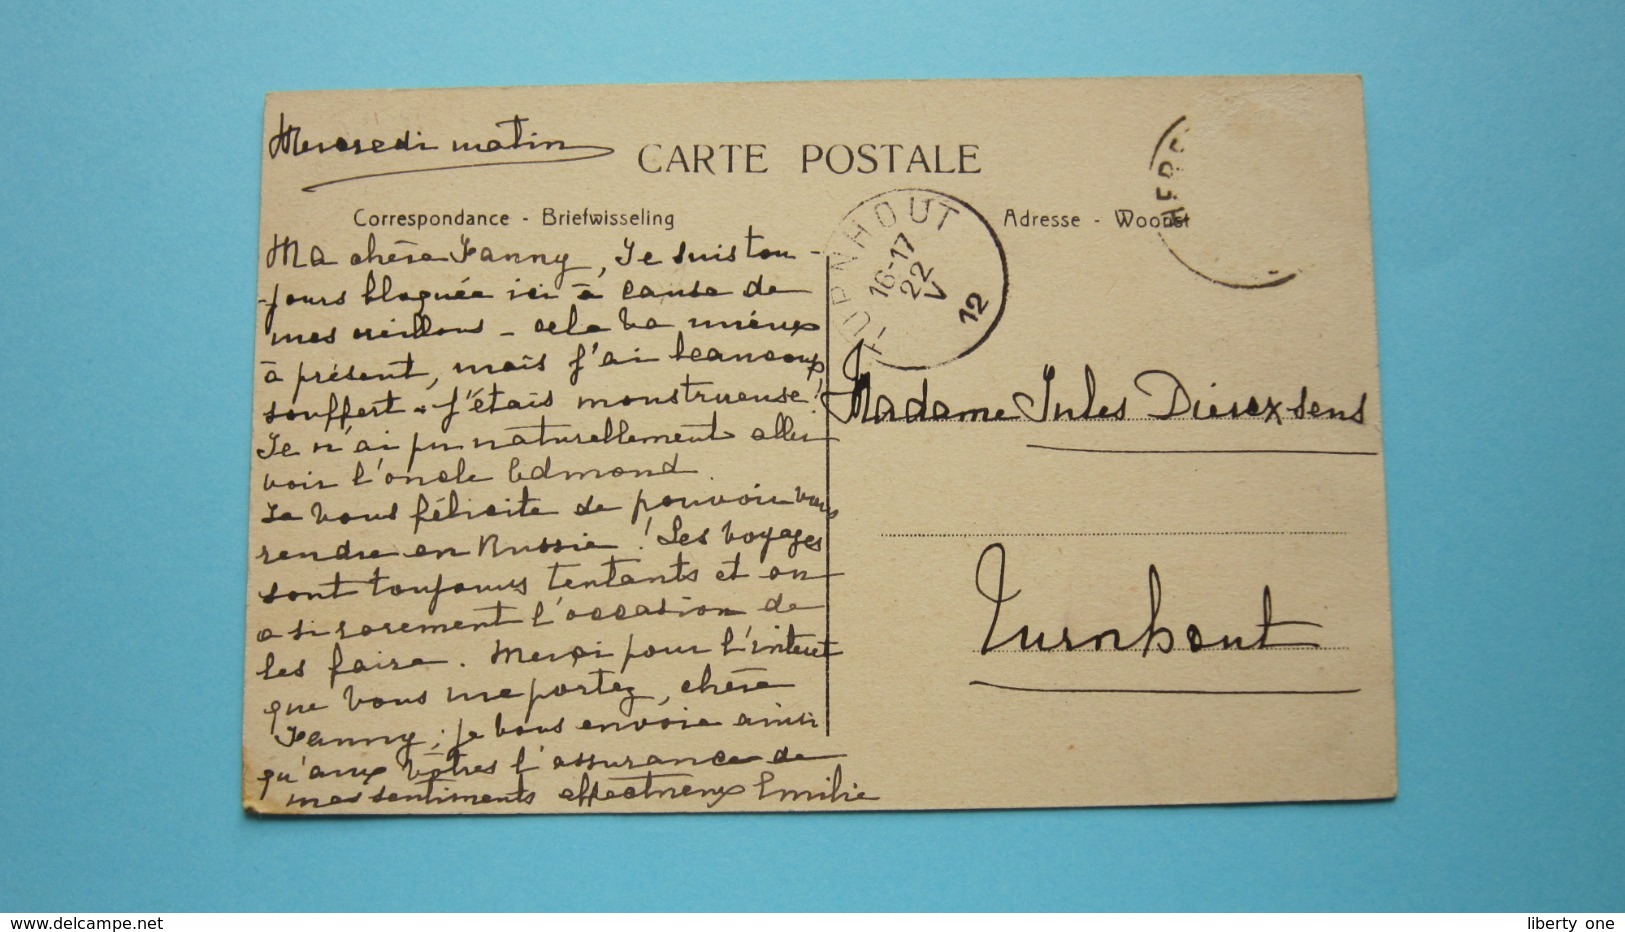 Mercredi matin
CARTE POSTALE
Correspondance - Briefwisseling
Adresse - Woonst
TURNHOUT
16-17
22
V
12
HERC
Ma chère Fanny, Je suis tou-
-jours bloquée ici à cause de
mes - cela va mieux
à présent, mais j'ai beaucoup
souffert. J'étais monstrueuse!
Je n'ai pu naturellement aller
voir l'oncle Edmond
Je vous félicite de pouvoir vous
rendre en Russie! Les voyages
sont toujours tentants et on
a si rarement l'occasion de
les faire. Merci pour l'intérêt
que vous me portez, chère
Fanny; je vous envoie ainsi
qu'aux vôtres l'assurance de
mes sentiments affectueux Emilie
Madame Jules Dierckxsens
Turnhout
www.delcampe.net
liberty one